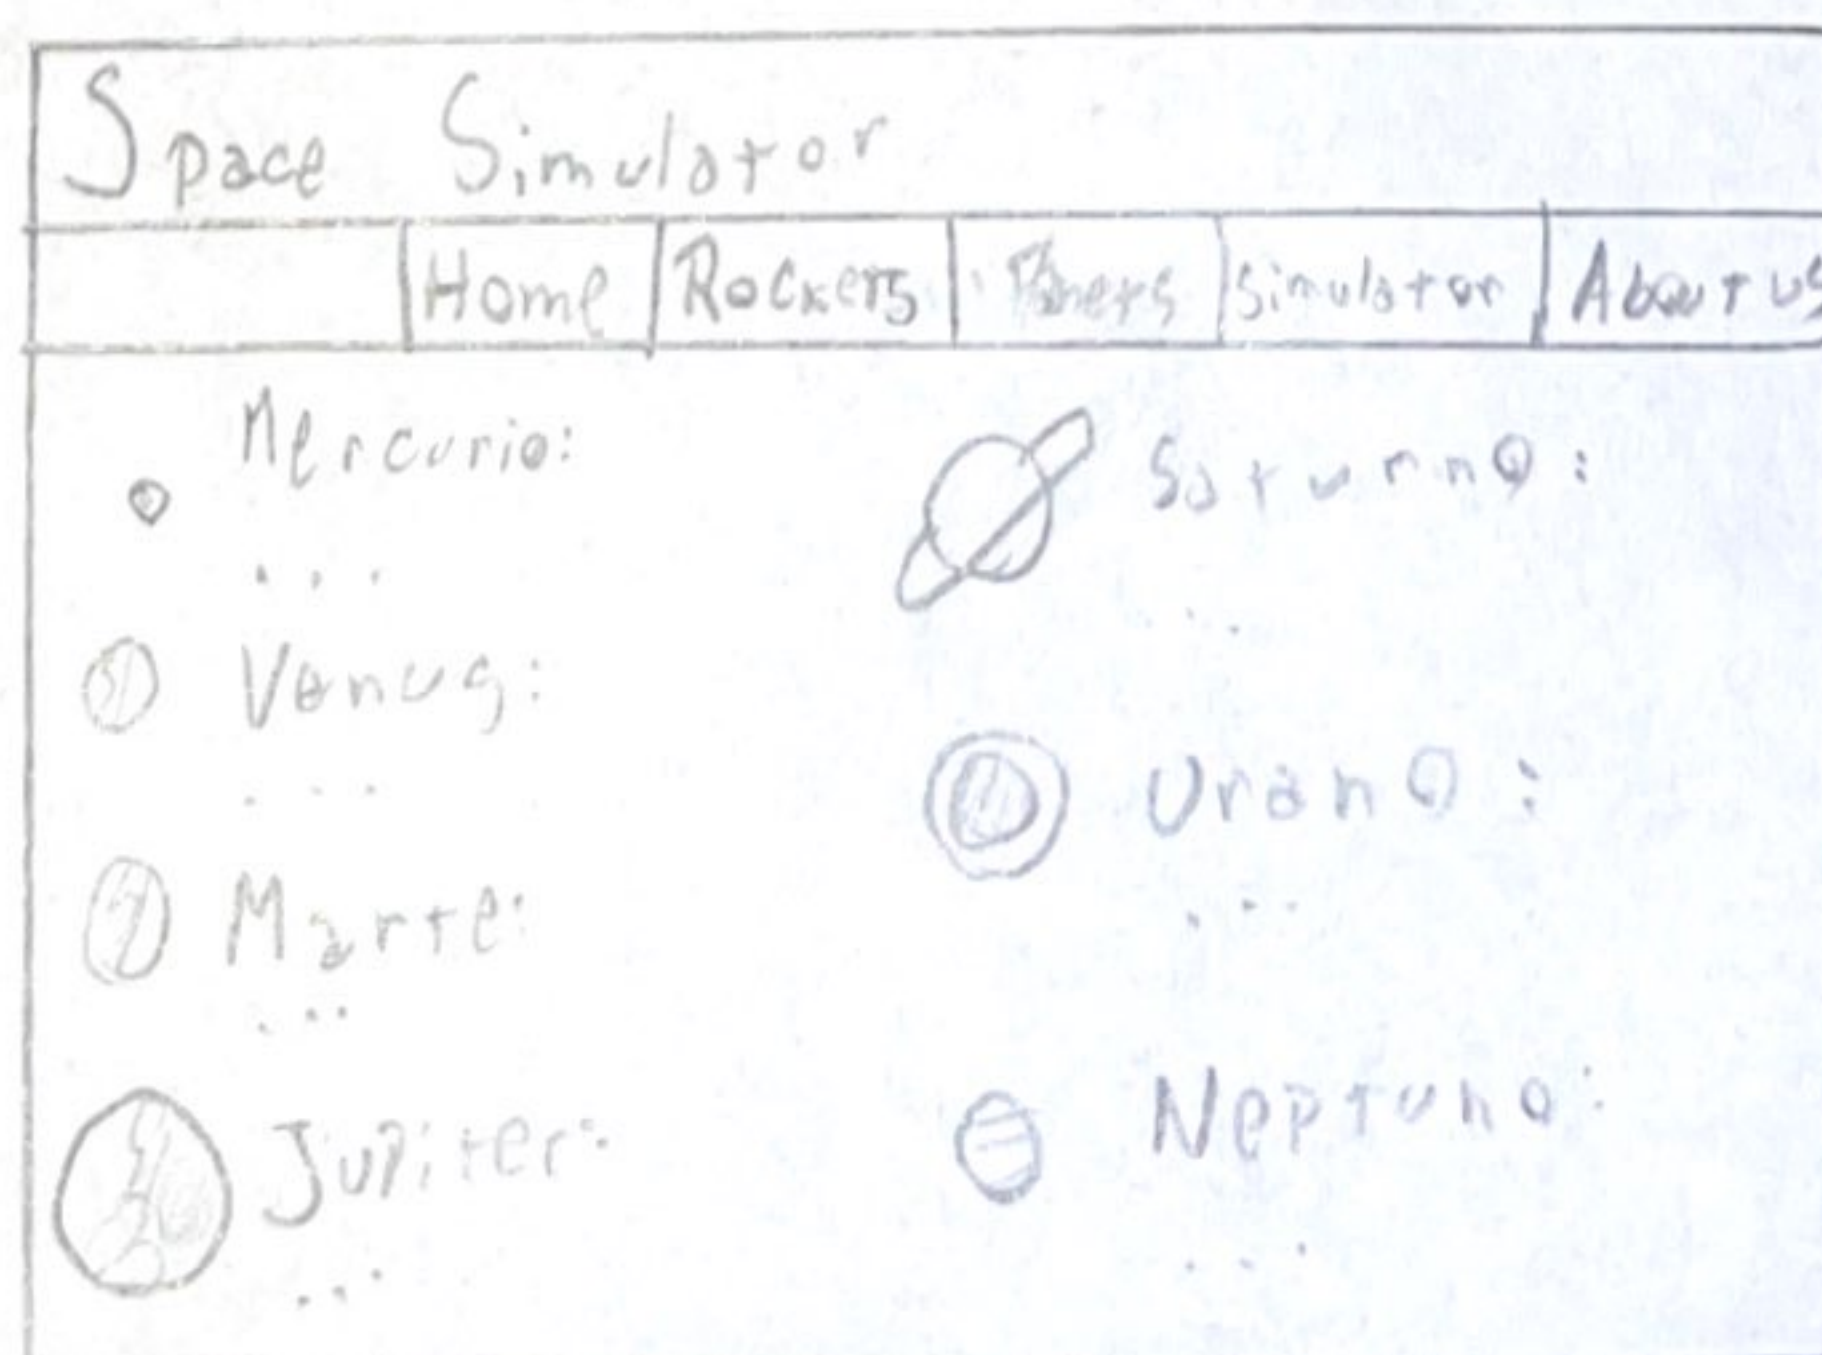 Space Simulator
Home Rockets Planets Simulator About us
Mercurio:
...
Venus:
...
Marte:
...
Jupiter:
...
Saturno:
...
Urano:
...
Neptuno:
...